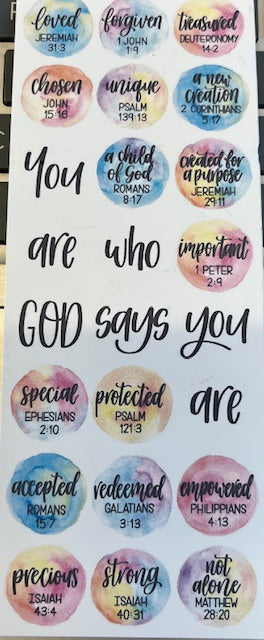 loved
JEREMIAH
31:3
forgiven
1 JOHN
1:9
treasured
DEUTERONOMY
14:2
chosen
JOHN
15:16
unique
PSALM
139:13
a new
creation
2 CORINTHIANS
5:17
You
a child
of God
ROMANS
8:17
created for
a purpose
JEREMIAH
29:11
are who
important
1 PETER
2:9
GOD says you
special
EPHESIANS
2:10
protected
PSALM
121:3
are
accepted
ROMANS
15:7
redeemed
GALATIANS
3:13
empowered
PHILIPPIANS
4:13
precious
ISAIAH
43:4
strong
ISAIAH
40:31
not
alone
MATTHEW
28:20